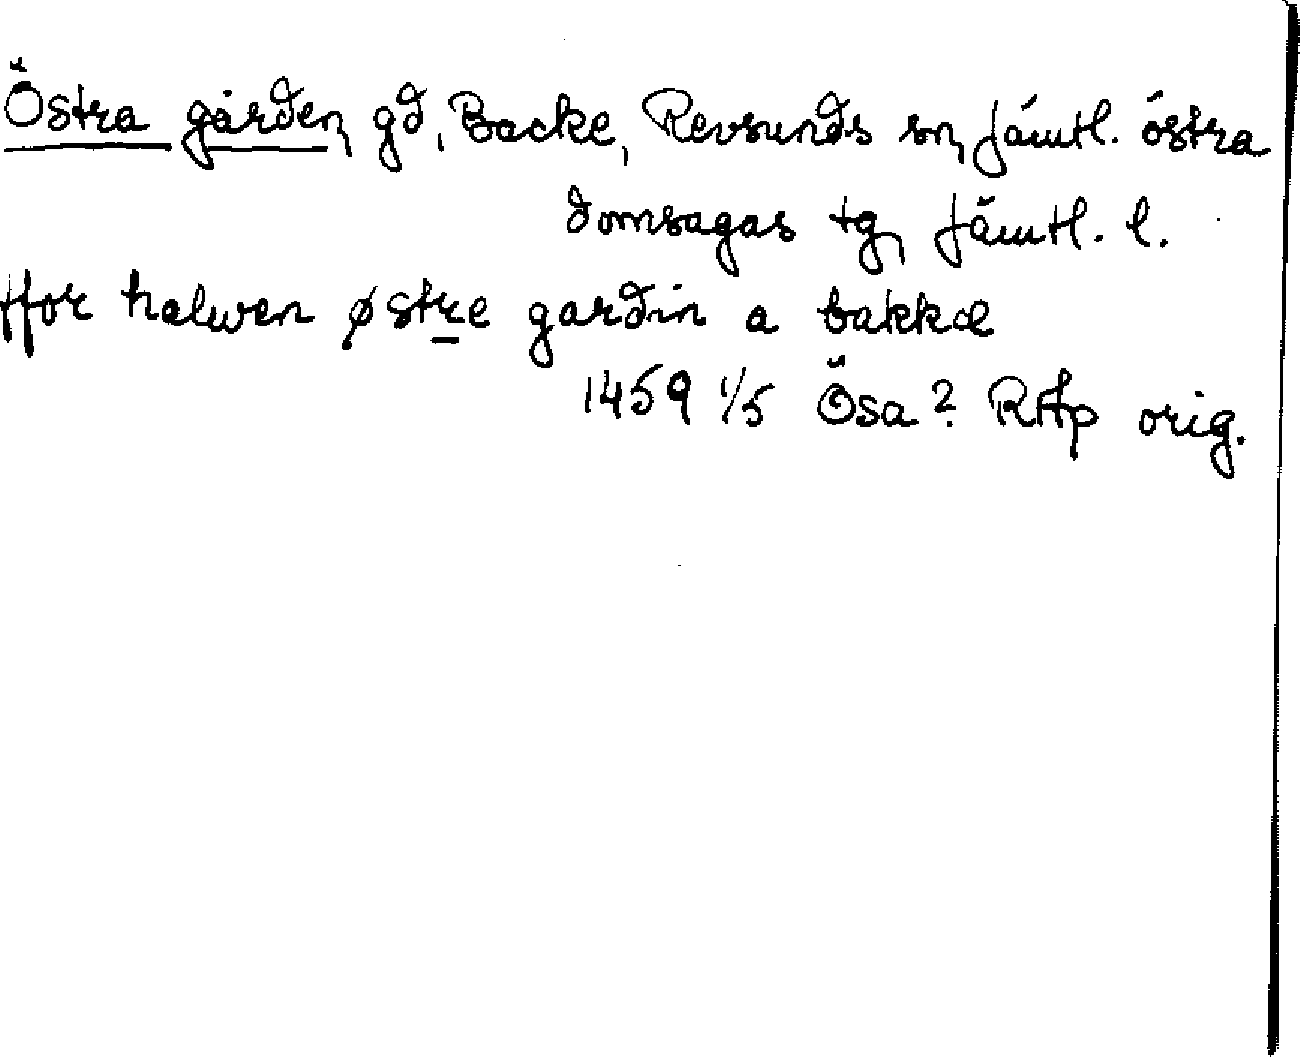 Östra gården, gd, Backe, Revsunds sn, Jämtl. östra
domsagas tg, Jämtl. l.
ffor halwen østre gardin a bakkæ
1459 1/5 Ösa? RAp orig.